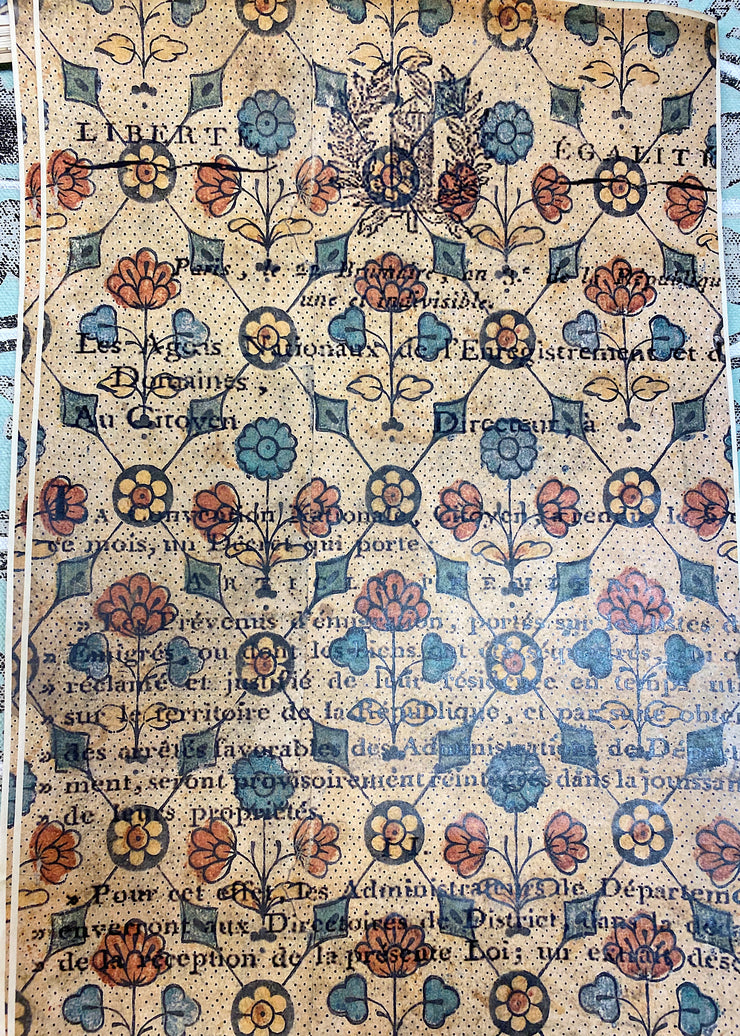 LIBERTÉ,
ÉGALITÉ
Paris, le 22 Brumaire, an 3.e de la République
une et indivisible.
Les Agens Nationaux de l'Enregistrement et d
Domaines,
Au Citoyen Directeur, à
LA Convention Nationale, Citoyen, a rendu le
ce mois, un Décret qui porte
ARTICLE PREMIER
» Les Prévenus d'émigration, portés sur les listes d
» Émigrés, ou dont les biens ont été séquestrés, qui o
» réclamé et justifié de leur résidence en temps uti
» sur le territoire de la République, et par suite obten
» des arrêtés favorables des Administrations de Départe
» ment, seront provisoirement réintégrés dans la jouissan
» de leurs propriétés.
II.
» Pour cet effet, les Administrateurs de Départeme
» enverront aux Directoires de District, dans la déc
» de la réception de la présente Loi; un extrait des